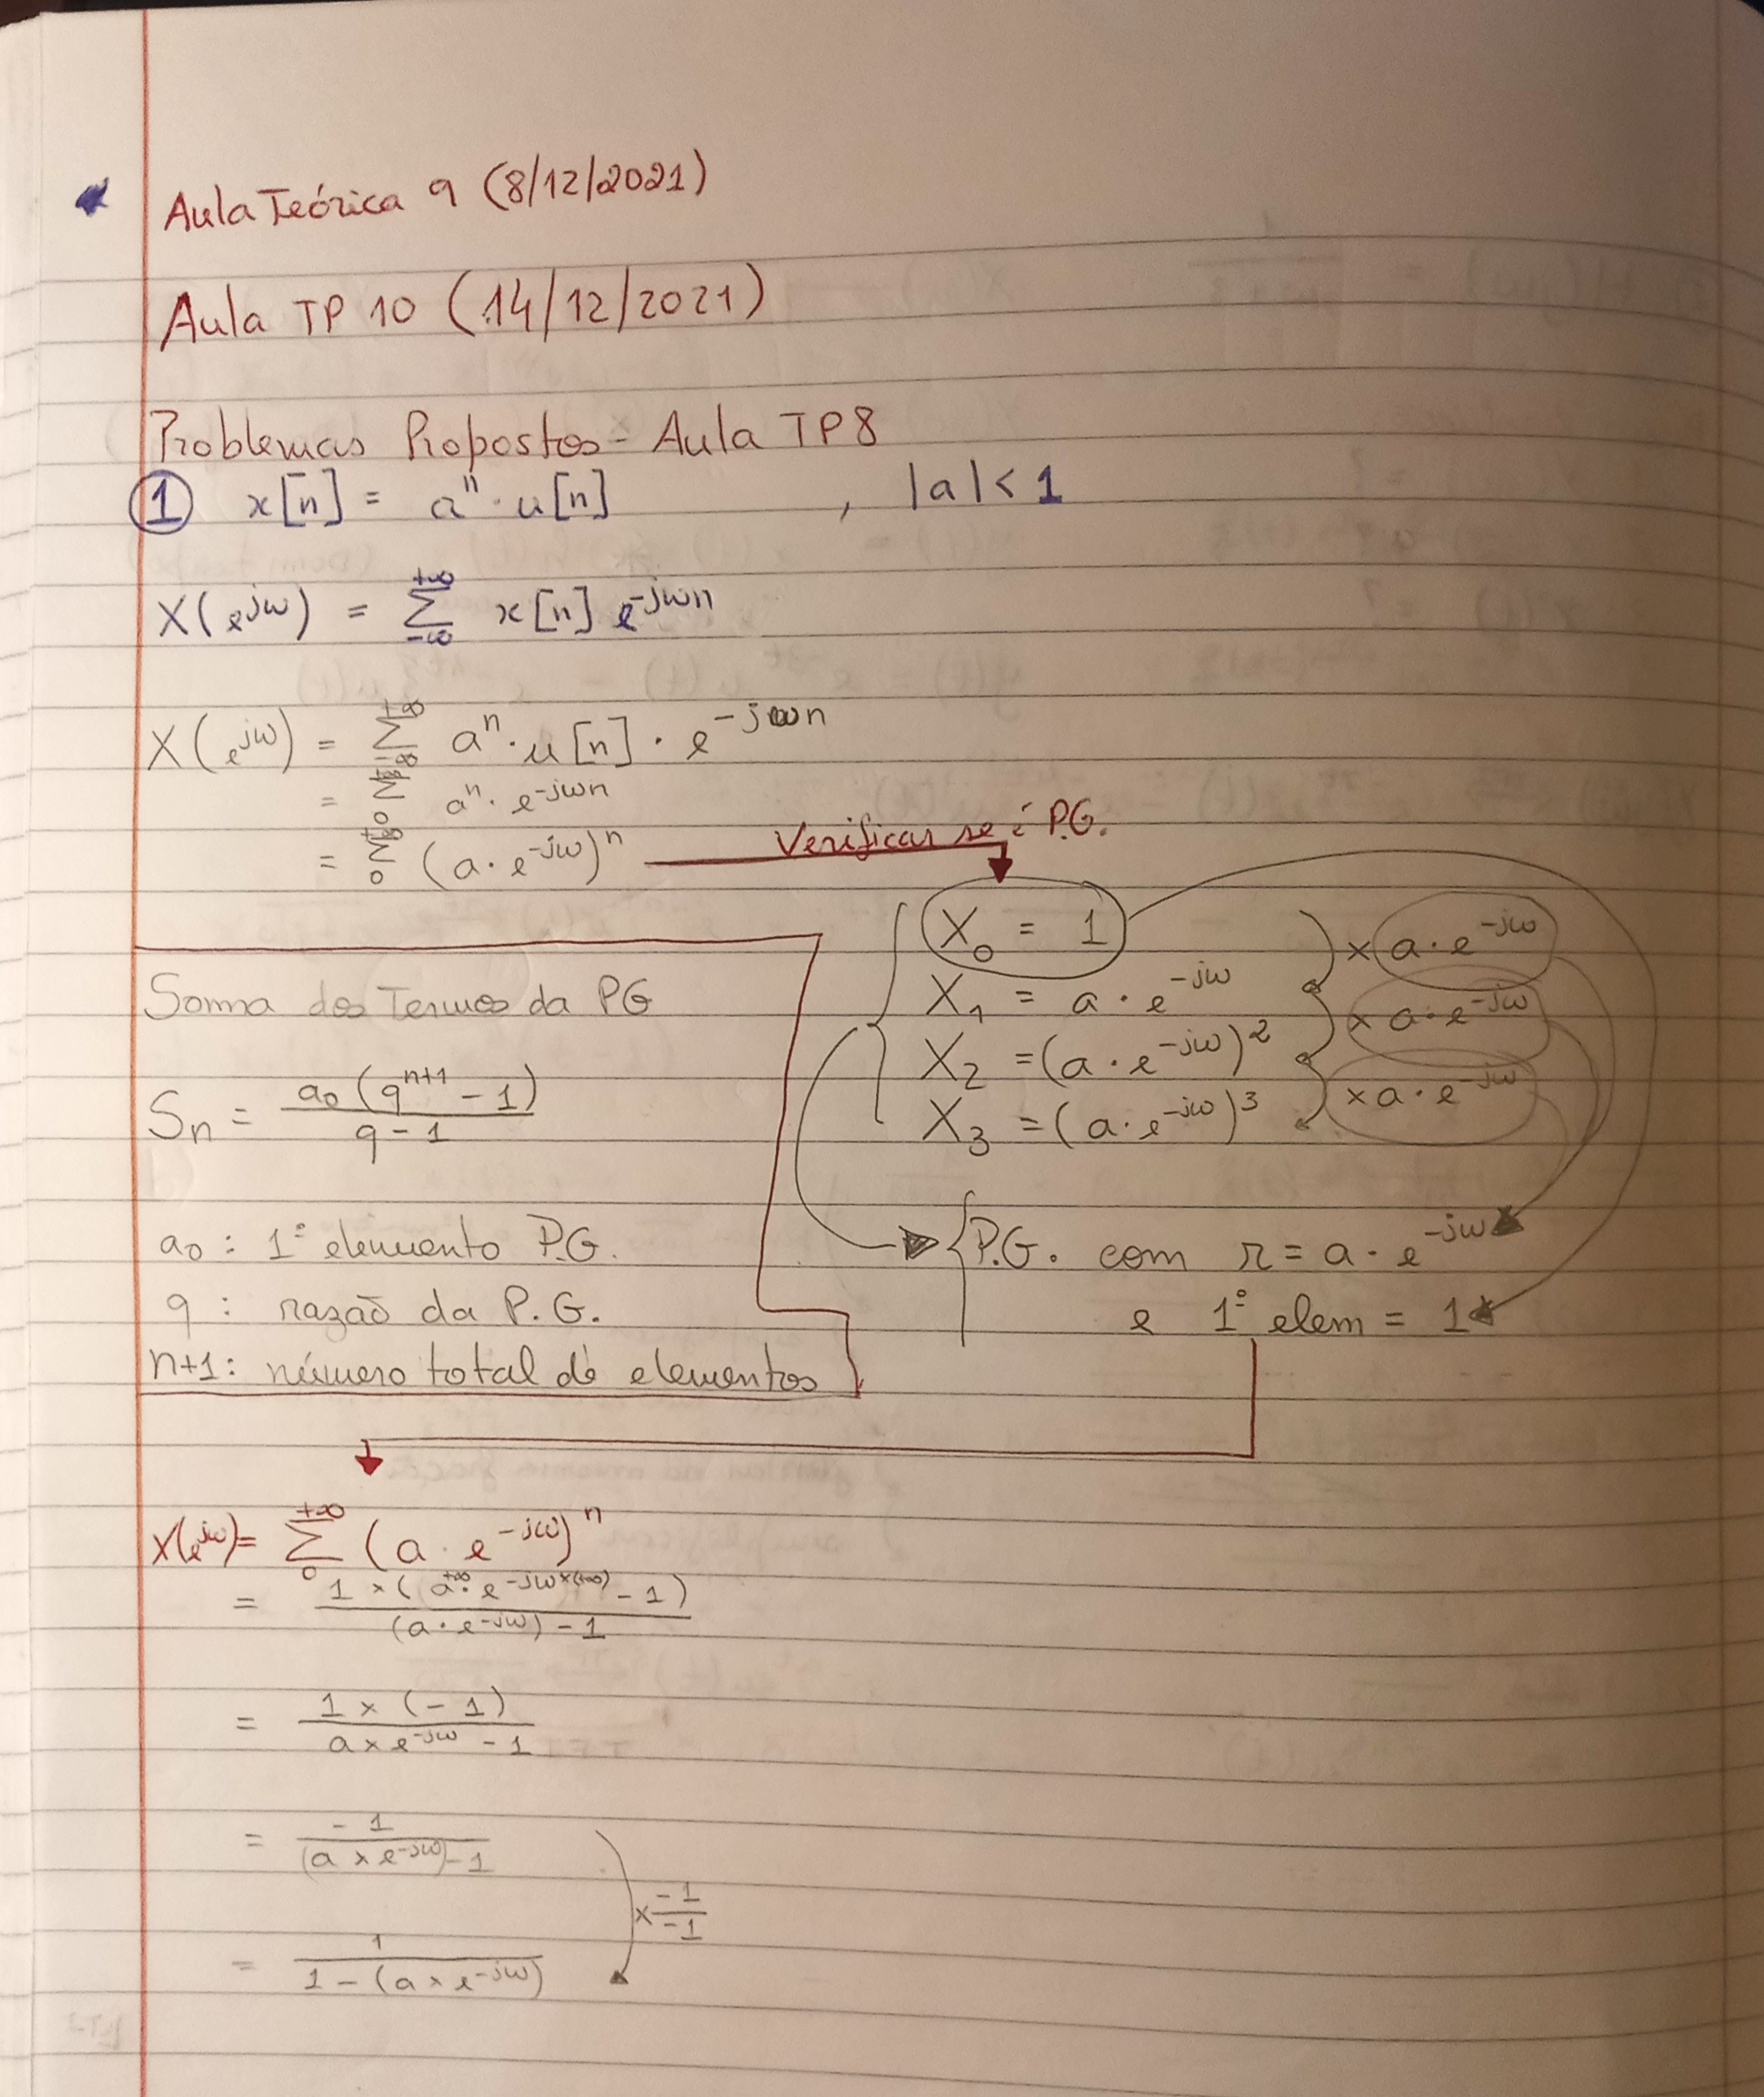 Aula Teórica 9 (8/12/2021)
Aula TP 10 (14/12/2021)
Problemas Propostos - Aula TP8
① x[n] = aⁿ · u[n] , |a| < 1
X(e^jω) = Σ_{-∞}^{+∞} x[n] e^{-jωn}
X(e^jω) = Σ_{-∞}^{+∞} aⁿ · u[n] · e^{-jωn}
= Σ_{0}^{+∞} aⁿ · e^{-jωn}
= Σ_{0}^{+∞} (a · e^{-jω})ⁿ
Verificar se é P.G.
X₀ = 1
× a · e^{-jω}
X₁ = a · e^{-jω}
× a · e^{-jω}
X₂ = (a · e^{-jω})²
× a · e^{-jω}
X₃ = (a · e^{-jω})³
P.G. com r = a · e^{-jω}
e 1º elem = 1
Soma dos Termos da PG
Sn = a₀ (q^{n+1} - 1) / (q - 1)
a₀ : 1º elemento P.G.
q : razão da P.G.
n+1 : número total de elementos
X(e^jω) = Σ_{0}^{+∞} (a · e^{-jω})ⁿ
= 1 × (a^{+∞} · e^{-jω×(+∞)} - 1) / ((a · e^{-jω}) - 1)
= 1 × (-1) / (a × e^{-jω} - 1)
= -1 / ((a × e^{-jω}) - 1)
× -1 / -1
= 1 / (1 - (a × e^{-jω}))